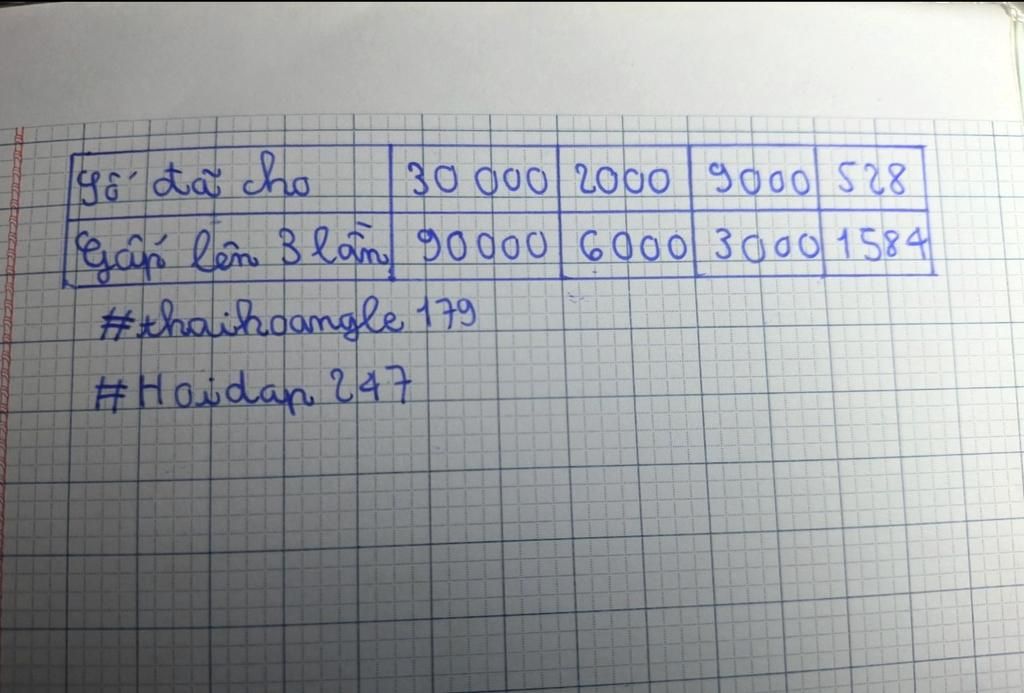 Số đã cho 30 000 2000 9000 528
Gấp lên 3 lần 90000 6000 3000 1584
#thaihoangle 179
#Hoidap 247